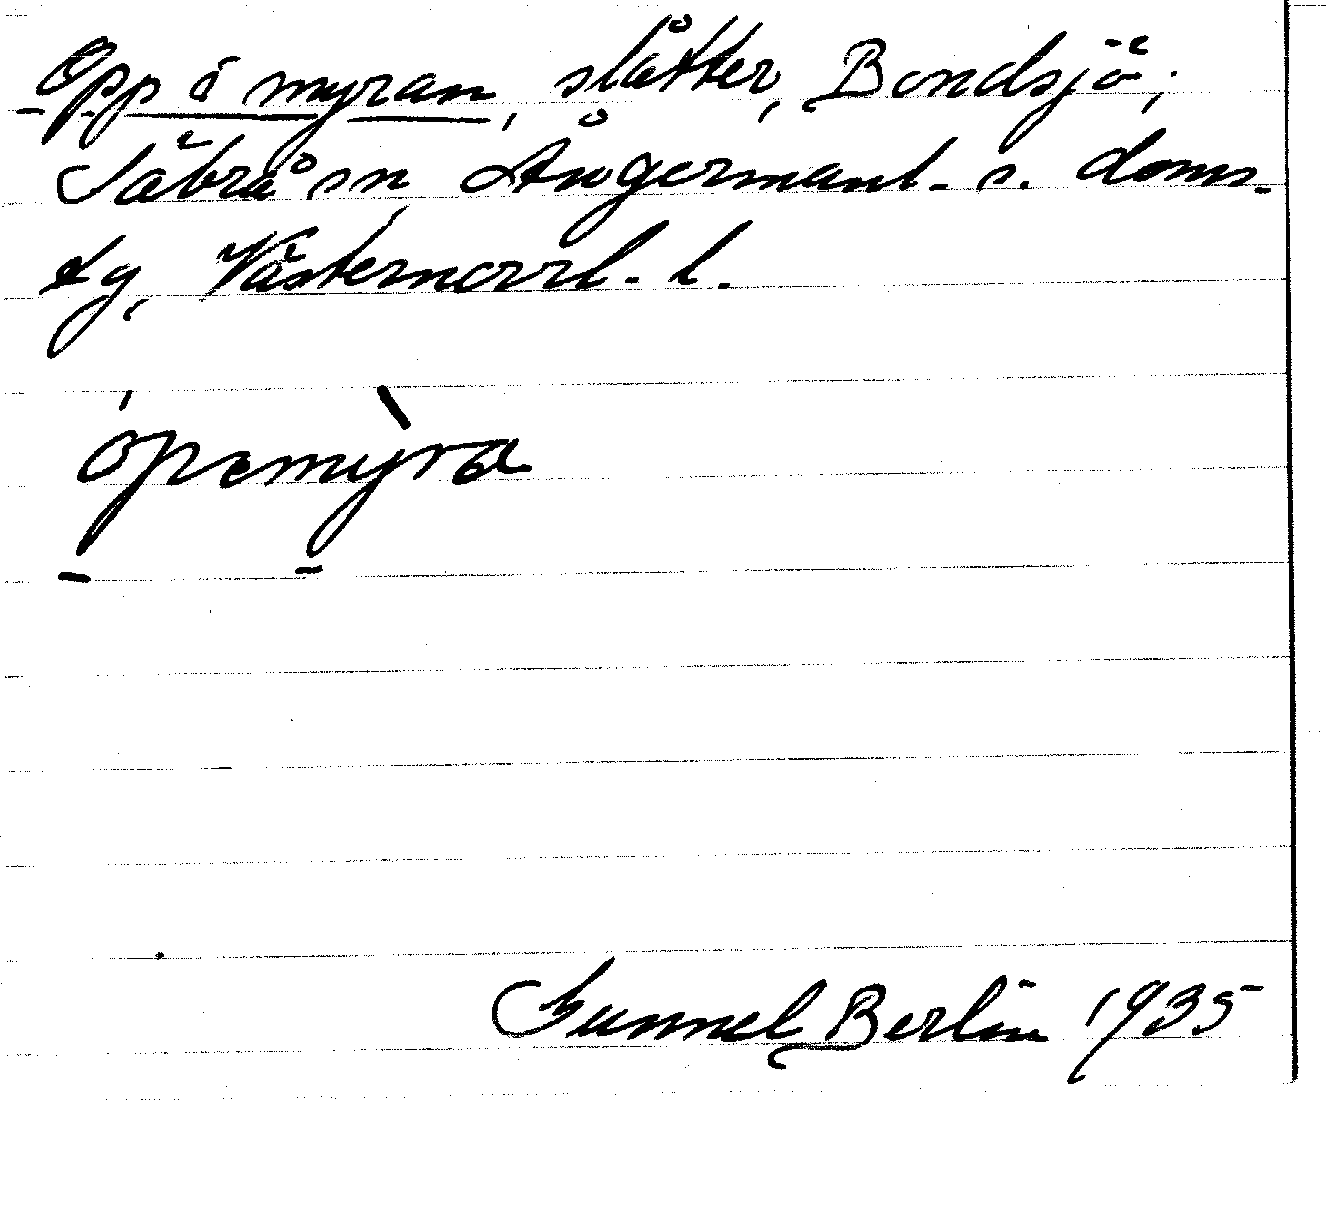 Opp å myran, slåtter, Bondsjö,
Säbrå sn Ångermanl. s. doms.
tg, Västernorrl. l.
opemyra
Gunnel Berlin 1935